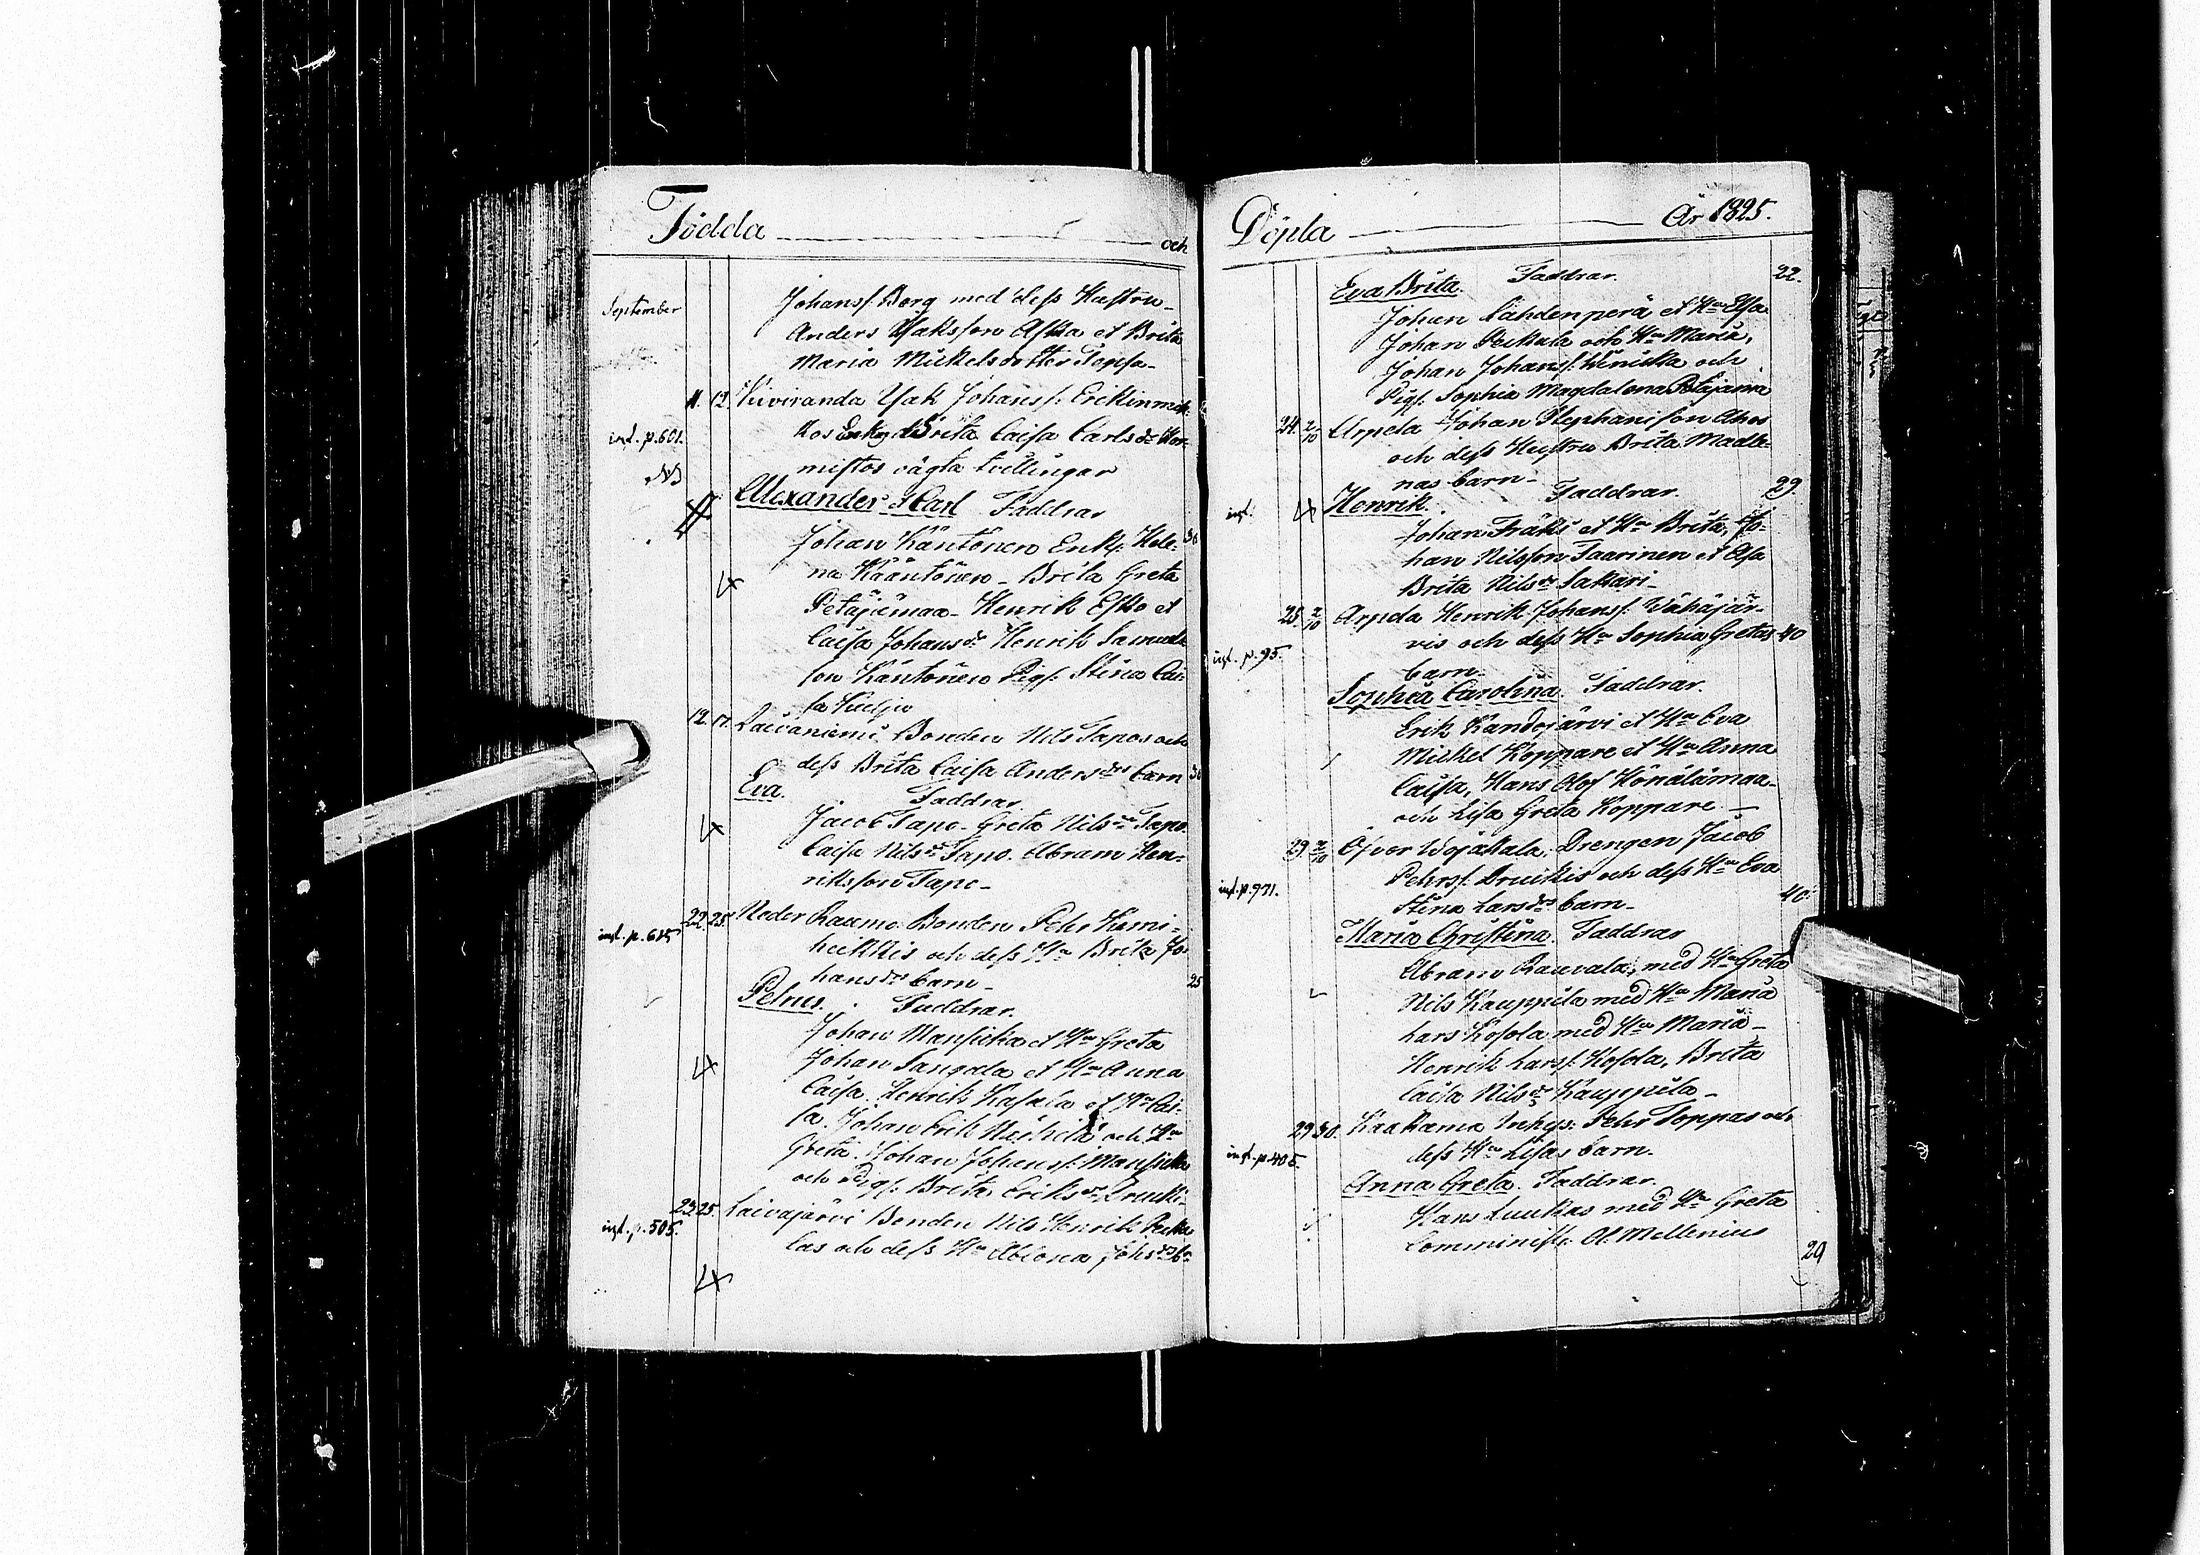 Födda och
September
Johanss. Borg med dess Hustru
Anders Isaksson Aska et Brita
Maria Mickelsdotter
11. 12. Kiviranda Isak Johanss. Erikinmik
inf. p. 601. kos Brita Caisa Carls dr
NB mistos oägta tvillingar
Alexander et Carl Faddrar
Johan Käntönen Enk. Hele- 30
na Kääntönen - Brita Greta
Petäjämaa - Henrik Esko et
Caisa Johansdr Henrik Samuels
son Käntönen Pig. Stina Cai-
sa
12. 17. Laivaniemi Bonden Nils Tapos och
dess Brita Caisa Andersdrs barn 30
Eva. Faddrar
Jacob Tapo - Greta Nilsdr Tapo
Caisa Nilsdr Tapo. Abram Hen-
riksson Tapo -
22. 25. Neder Raumo Bonden Pehr Kemi-
inf. p. 615 heikkis och dess Hu Brita Jo-
hansdrs barn - 25
Petrus. Faddrar.
Johan Mansikka et Hu Greta
Johan Sangala et Hu Anna
Caisa. Henrik et Hu Cai-
sa. Johan Erik och Hu
Greta. Johan Johanss. Mansikka
och Pig. Brita Eriksdr
23. 25. Laivajärvi Bonden Nils Henrik
inf. p. 505. las och dess Hu Abiona Johsdrs bn
Döpta År 1825.
Eva Brita. Faddrar. 22.
Johan Lahdenperä et Hu Elsa
Johan Peckala och Hu Maria,
Johan Johanss. och
Pig. Sophia Magdalena Petäjämaa
24. 2/10 Arpela Johan Stephansson Ahos
och dess Hustru Brita Madle-
nas barn -
inf. Henrik. Faddrar. 29.
Johan Fräki et Hu Brita, Jo-
han Nilsson Taarinen et Elsa
Brita Nilsdr Sakkari -
25. 2/10 Arpela Henrik Johanss. Wähäjär-
vis och dess Hu Sophia Gretas 40
inf. p. 95. barn -
Sophia Carolina. Faddrar.
Erik Kandojärvi et Hu Eva
Mickel Koppare et Hu Anna
Caisa, Hans Olof Könälämaa
och Lisa Greta Koppare -
29. 2/10 Öfver Wojakala. Drengen Jacob
Pehrss. Druikis och dess Hu Eva
inf. p. 971. Stina Larsdrs barn - 40.
Maria Christina. Faddrar
Abram Rauvala, med Hu Greta
Nils Kauppila med Hu Maria
Lars Kosola med Hu Maria -
Henrik Larss. Kosola, Brita
Caisa Nilsdr Kauppila -
29 30. Kaakama Inhys. Pehr Toppas och
inf. p. 405. dess Hu Lisas barn.
Anna Greta. Faddrar.
Hans Luukas med Hu Greta
Comminist. Ol. Mellenius
29